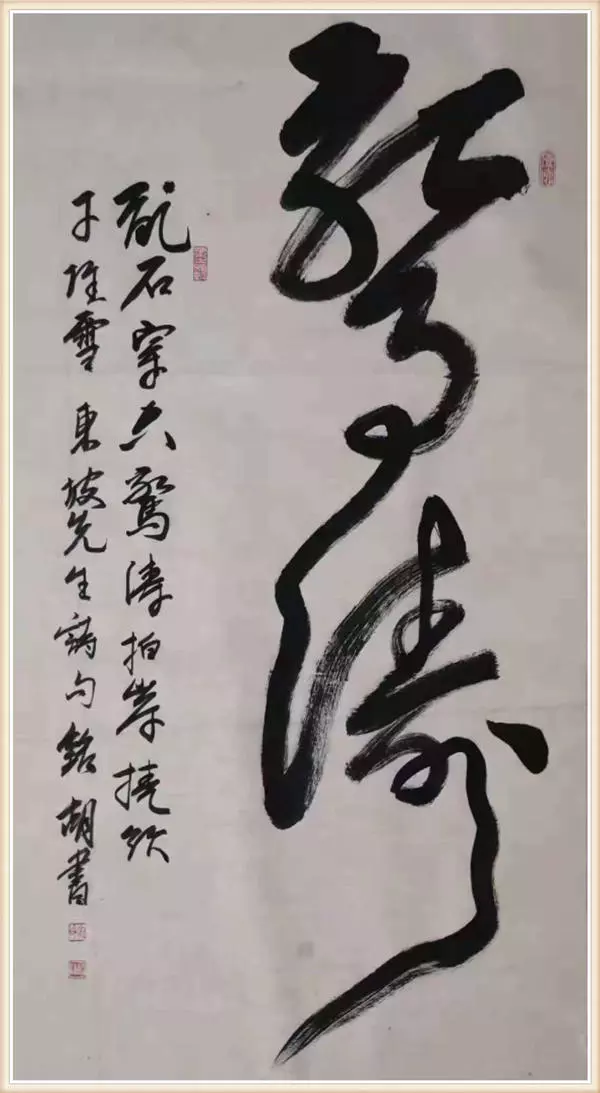 驚濤
亂石穿空驚濤拍岸捲起
千堆雪 東坡先生詩句 銘胡書